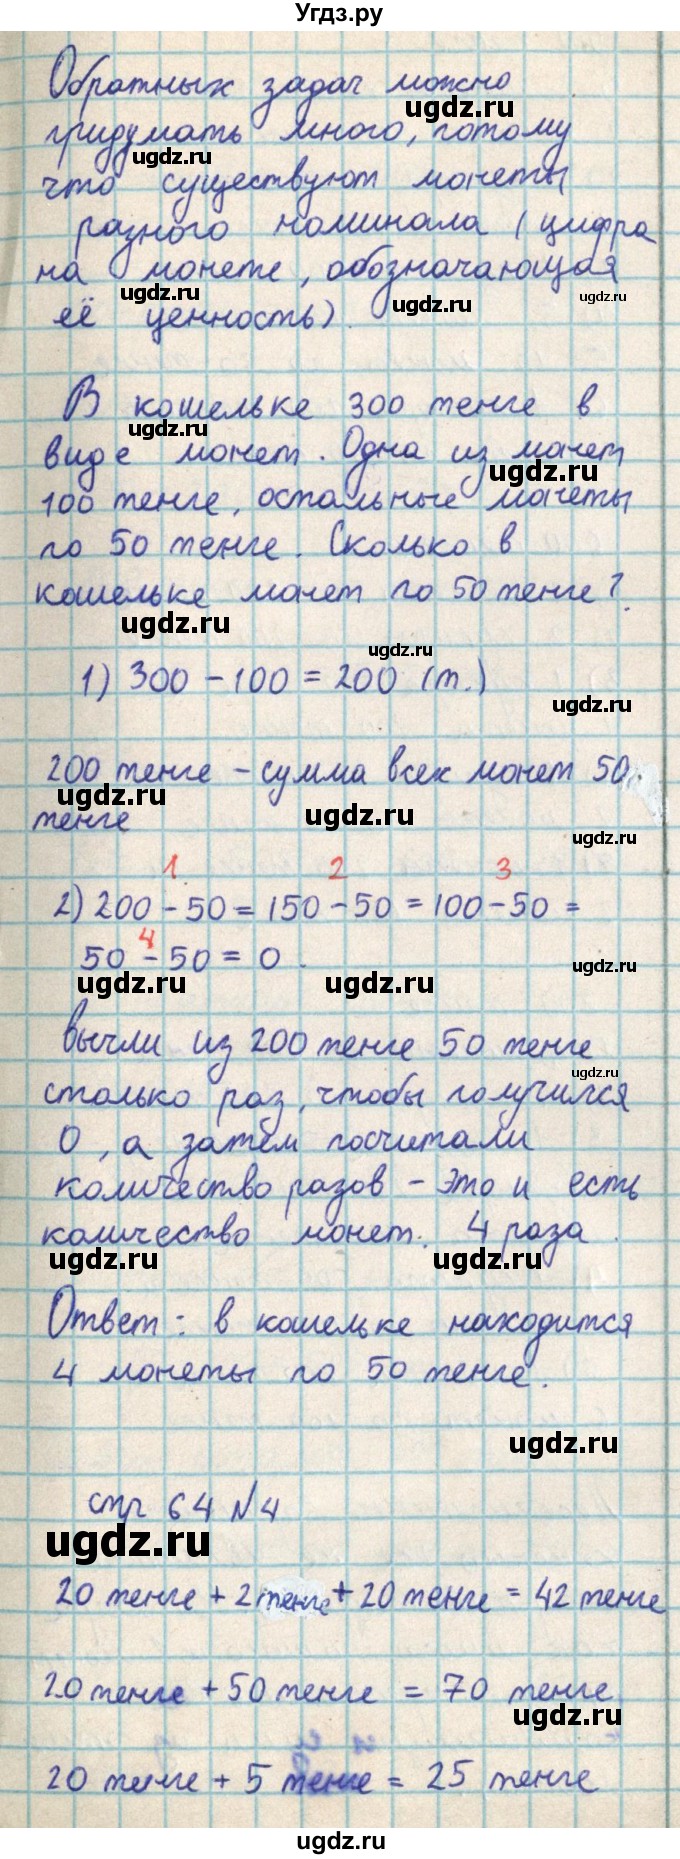 Угдз.ру
Обратных задач можно
ugdz.ru
придумать много, потому
ugdz.ru
что существуют монеты
разного номинала (цифра
на монете, обозначающая
ugdz.ru ugdz.ru ugdz.ru
её ценность).
В кошельке 300 тенге в
ugdz.ru
виде монет. Одна из монет
ugdz.ru
100 тенге, остальные монеты
по 50 тенге. Сколько в
кошельке монет по 50 тенге?
ugdz.ru
ugdz.ru
1) 300 - 100 = 200 (т.)
ugdz.ru
200 тенге - сумма всех монет 50
ugdz.ru ugdz.ru
тенге
ugdz.ru
1 2 3
2) 200 - 50 = 150 - 50 = 100 - 50 =
4
50 - 50 = 0.
ugdz.ru ugdz.ru ugdz.ru
Вычли из 200 тенге 50 тенге
ugdz.ru
столько раз, чтобы получился
0, а затем посчитали
количество разов - это и есть
количество монет. 4 раза.
ugdz.ru ugdz.ru
Ответ: в кошельке находится
4 монеты по 50 тенге.
ugdz.ru
стр 64 №4
ugdz.ru
20 тенге + 2 тенге + 20 тенге = 42 тенге
20 тенге + 50 тенге = 70 тенге
ugdz.ru
20 тенге + 5 тенге = 25 тенге
ugdz.ru